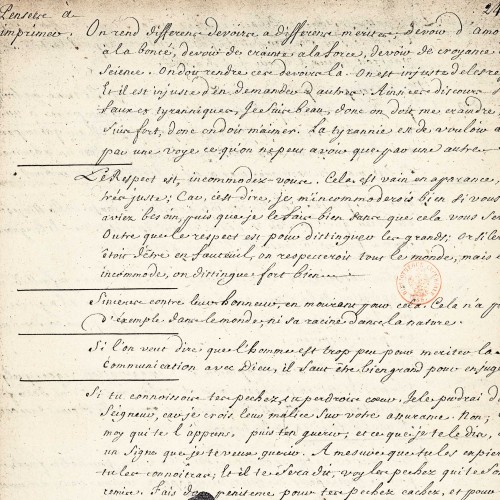 Pensées à
imprimer.
24
On rend differens devoirs a differens merites, devoir d'amo
à la bonté, devoir de crainte à la force, devoir de croyance
Science. On doit rendre ces devoirs là. On est injuste de les re
Et il est injuste d'en demander d'autres. Ainsi ces discours s
faux et tyranniques, Je suis beau, donc on doit me craindre,
suis fort, donc on doit m'aimer. La tyrannie est de vouloir a
par une voye ce qu'on ne peut avoir que par une autre.
Le Respect est, incommodez-vous. Cela est vain en aparance,
très juste; Car, c'est dire, je m'incommoderois bien si vous
aviez besoin, puis que je le fais bien sans que cela vous ser
Outre que le respect est pour distinguer les grands: Or si le r
étoit d'être en fauteuil, on respecteroit tout le monde, mais é
incommodé, on distingue fort bien.
Sinceres contre leur honneur, en mourant pour cela. Cela n'a p
d'exemple dans le monde, ni sa racine dans la nature.
Si l'on veut dire que l'homme est trop peu pour meriter la
Communication avec Dieu, il faut être bien grand pour en jug
Si tu connoissois tes pechez, tu perdrois cœur. Je le perdrai do
Seigneur, car je crois leur malice sur votre assurance. Non;
moy qui te l'apprens, puis t'en guerir, et ce que je te le dis,
un Signe que je te veux guerir. A mesure que tu les expier
tu les connoîtras; Et il te sera dit, voy les pechez qui te so
remis. Fais donc penitence pour tes pechez cachez, et pour